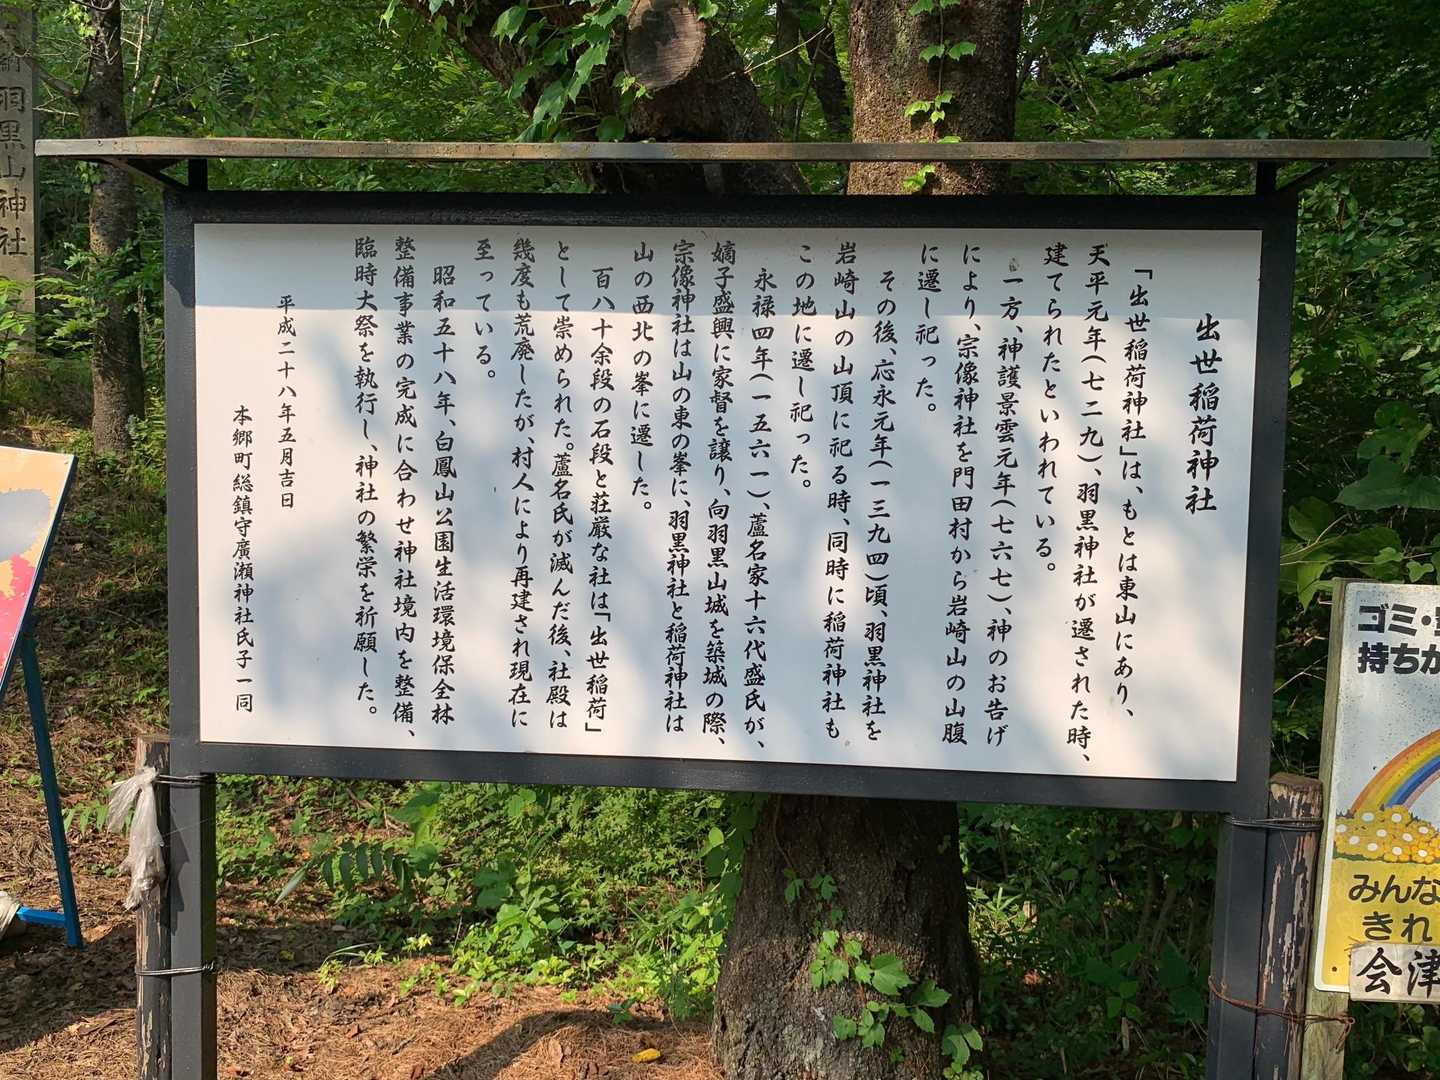 出世稲荷神社
「出世稲荷神社」は、もとは東山にあり、
天平元年(七二九)、羽黒神社が遷された時、
建てられたといわれている。
一方、神護景雲元年(七六七)、神のお告げ
により、宗像神社を門田村から岩崎山の山腹
に遷し祀った。
その後、応永元年(一三九四)頃、羽黒神社を
岩崎山の山頂に祀る時、同時に稲荷神社も
この地に遷し祀った。
永禄四年(一五六一)、蘆名家十六代盛氏が、
嫡子盛興に家督を譲り、向羽黒山城を築城の際、
宗像神社は山の東の峯に、羽黒神社と稲荷神社は
山の西北の峯に遷した。
百八十余段の石段と荘厳な社は「出世稲荷」
として崇められた。蘆名氏が滅んだ後、社殿は
幾度も荒廃したが、村人により再建され現在に
至っている。
昭和五十八年、白鳳山公園生活環境保全林
整備事業の完成に合わせ神社境内を整備、
臨時大祭を執行し、神社の繁栄を祈願した。
平成二十八年五月吉日
本郷町総鎮守廣瀬神社氏子一同
羽黒山神社
ゴミ・
持ちか
みんな
きれ
会津